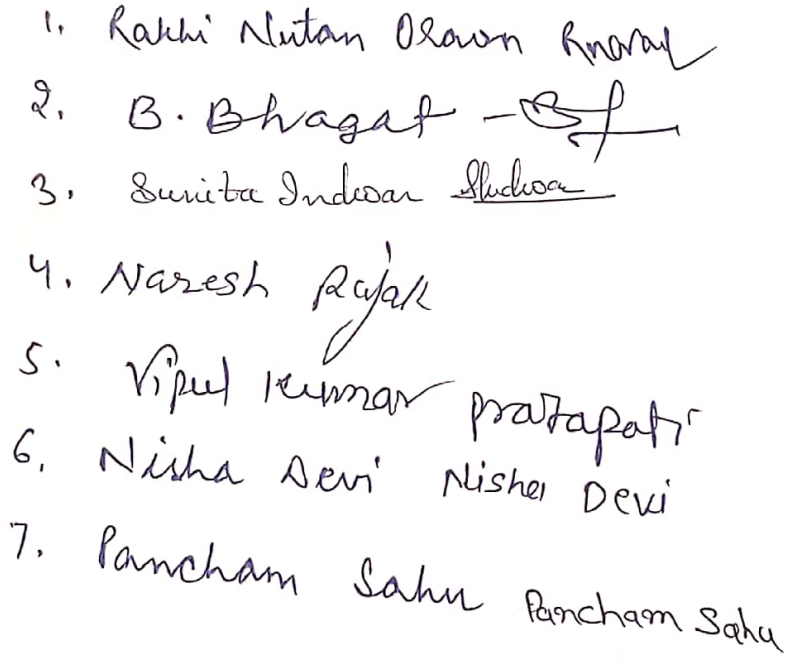 1. Rakhi Nutan Oraon
2. B. Bhagat -
3. Sunita Indwar
4. Naresh Rajak
5. Vipul Kumar prajapati
6. Nisha Devi Nisha Devi
7. Pancham Sahu Pancham Sahu